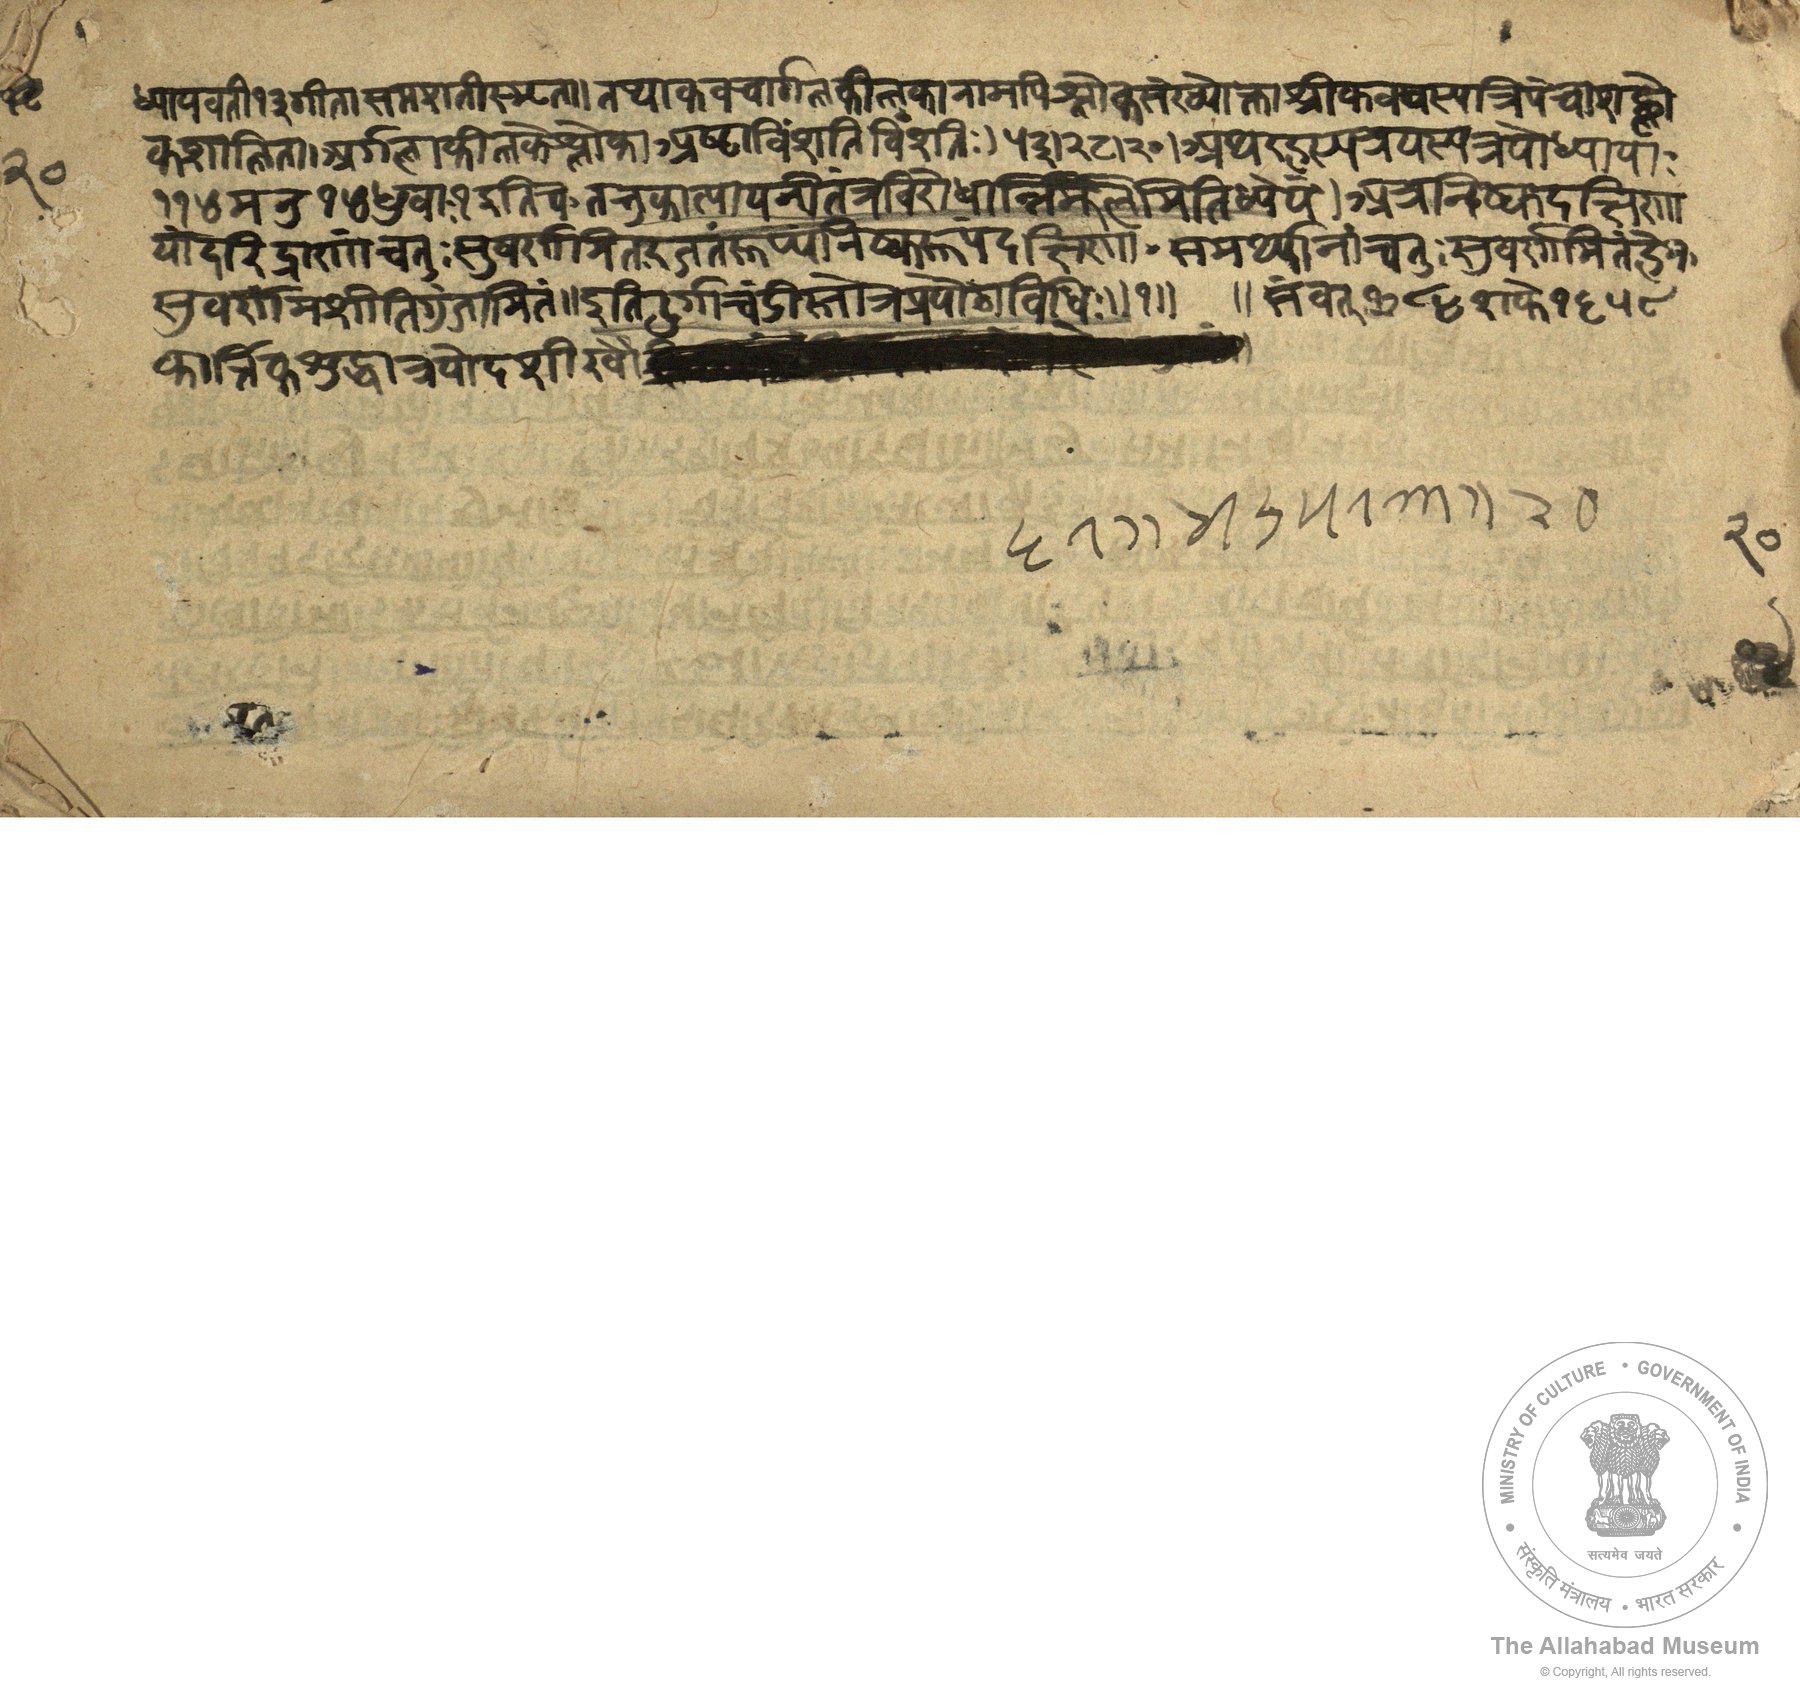 ध्यायवती १३ गीता सप्तशती स्मृता॥ तथा कवचार्गलकीलकानामपि श्लोकसंख्योक्ता श्रीकवचस्य त्रिपंचाशच्छ्लो
२०
कशालिता। अर्गलाकीलके श्लोका अष्टाविंशति विंशतिः। ५३। २८। २०। अथ रहस्यत्रयस्य त्रयोध्यायाः
११४ मनु १४ ध्रुवाः १ इति च तत्तु कात्यायनीतंत्रविरोधान्निर्मूलमिति ध्येयं। अत्र निष्कदक्षिणा
यां दरिद्राणां चतुःसुवर्णमितरजतं रूप्यनिष्करूपं दक्षिणा समर्थानां चतुःसुवर्णमितं हेम
सुवर्णमशीतिगुंजामितं॥ इति दुर्गाचंडीस्तोत्रप्रयोगविधिः॥ १॥ ॥ संवत् शाके १६५९
कार्त्तिकशुद्धा त्रयोदशी रवौ
२० २०
MINISTRY OF CULTURE • GOVERNMENT OF INDIA
सत्यमेव जयते
संस्कृति मंत्रालय • भारत सरकार
The Allahabad Museum
© Copyright, All rights reserved.